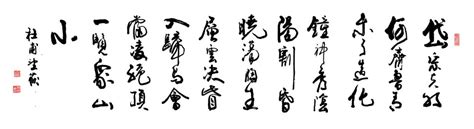 岱宗夫如
何齊魯青
未了造化
鍾神秀陰
陽割昏
曉蕩胸生
層雲決眥
入歸鳥會
當凌絕頂
一覽衆山
小
杜甫望嶽